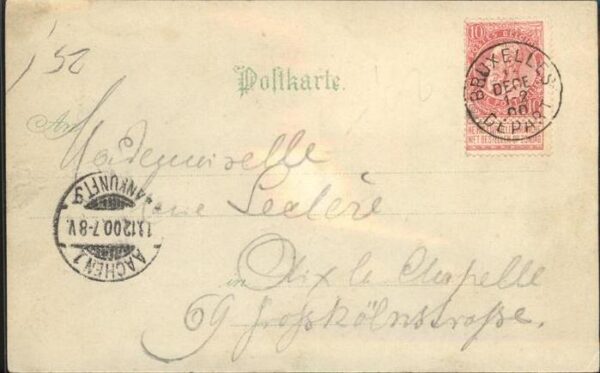 152
Postkarte.
10
BRUXELLES
DECE
12
00
DEPART
An
Mademoiselle
Leclère
ANKUNFT.
13.12.00.7-8V.
AACHEN 1
in Aix la Chapelle
69 Großkölnstraße.